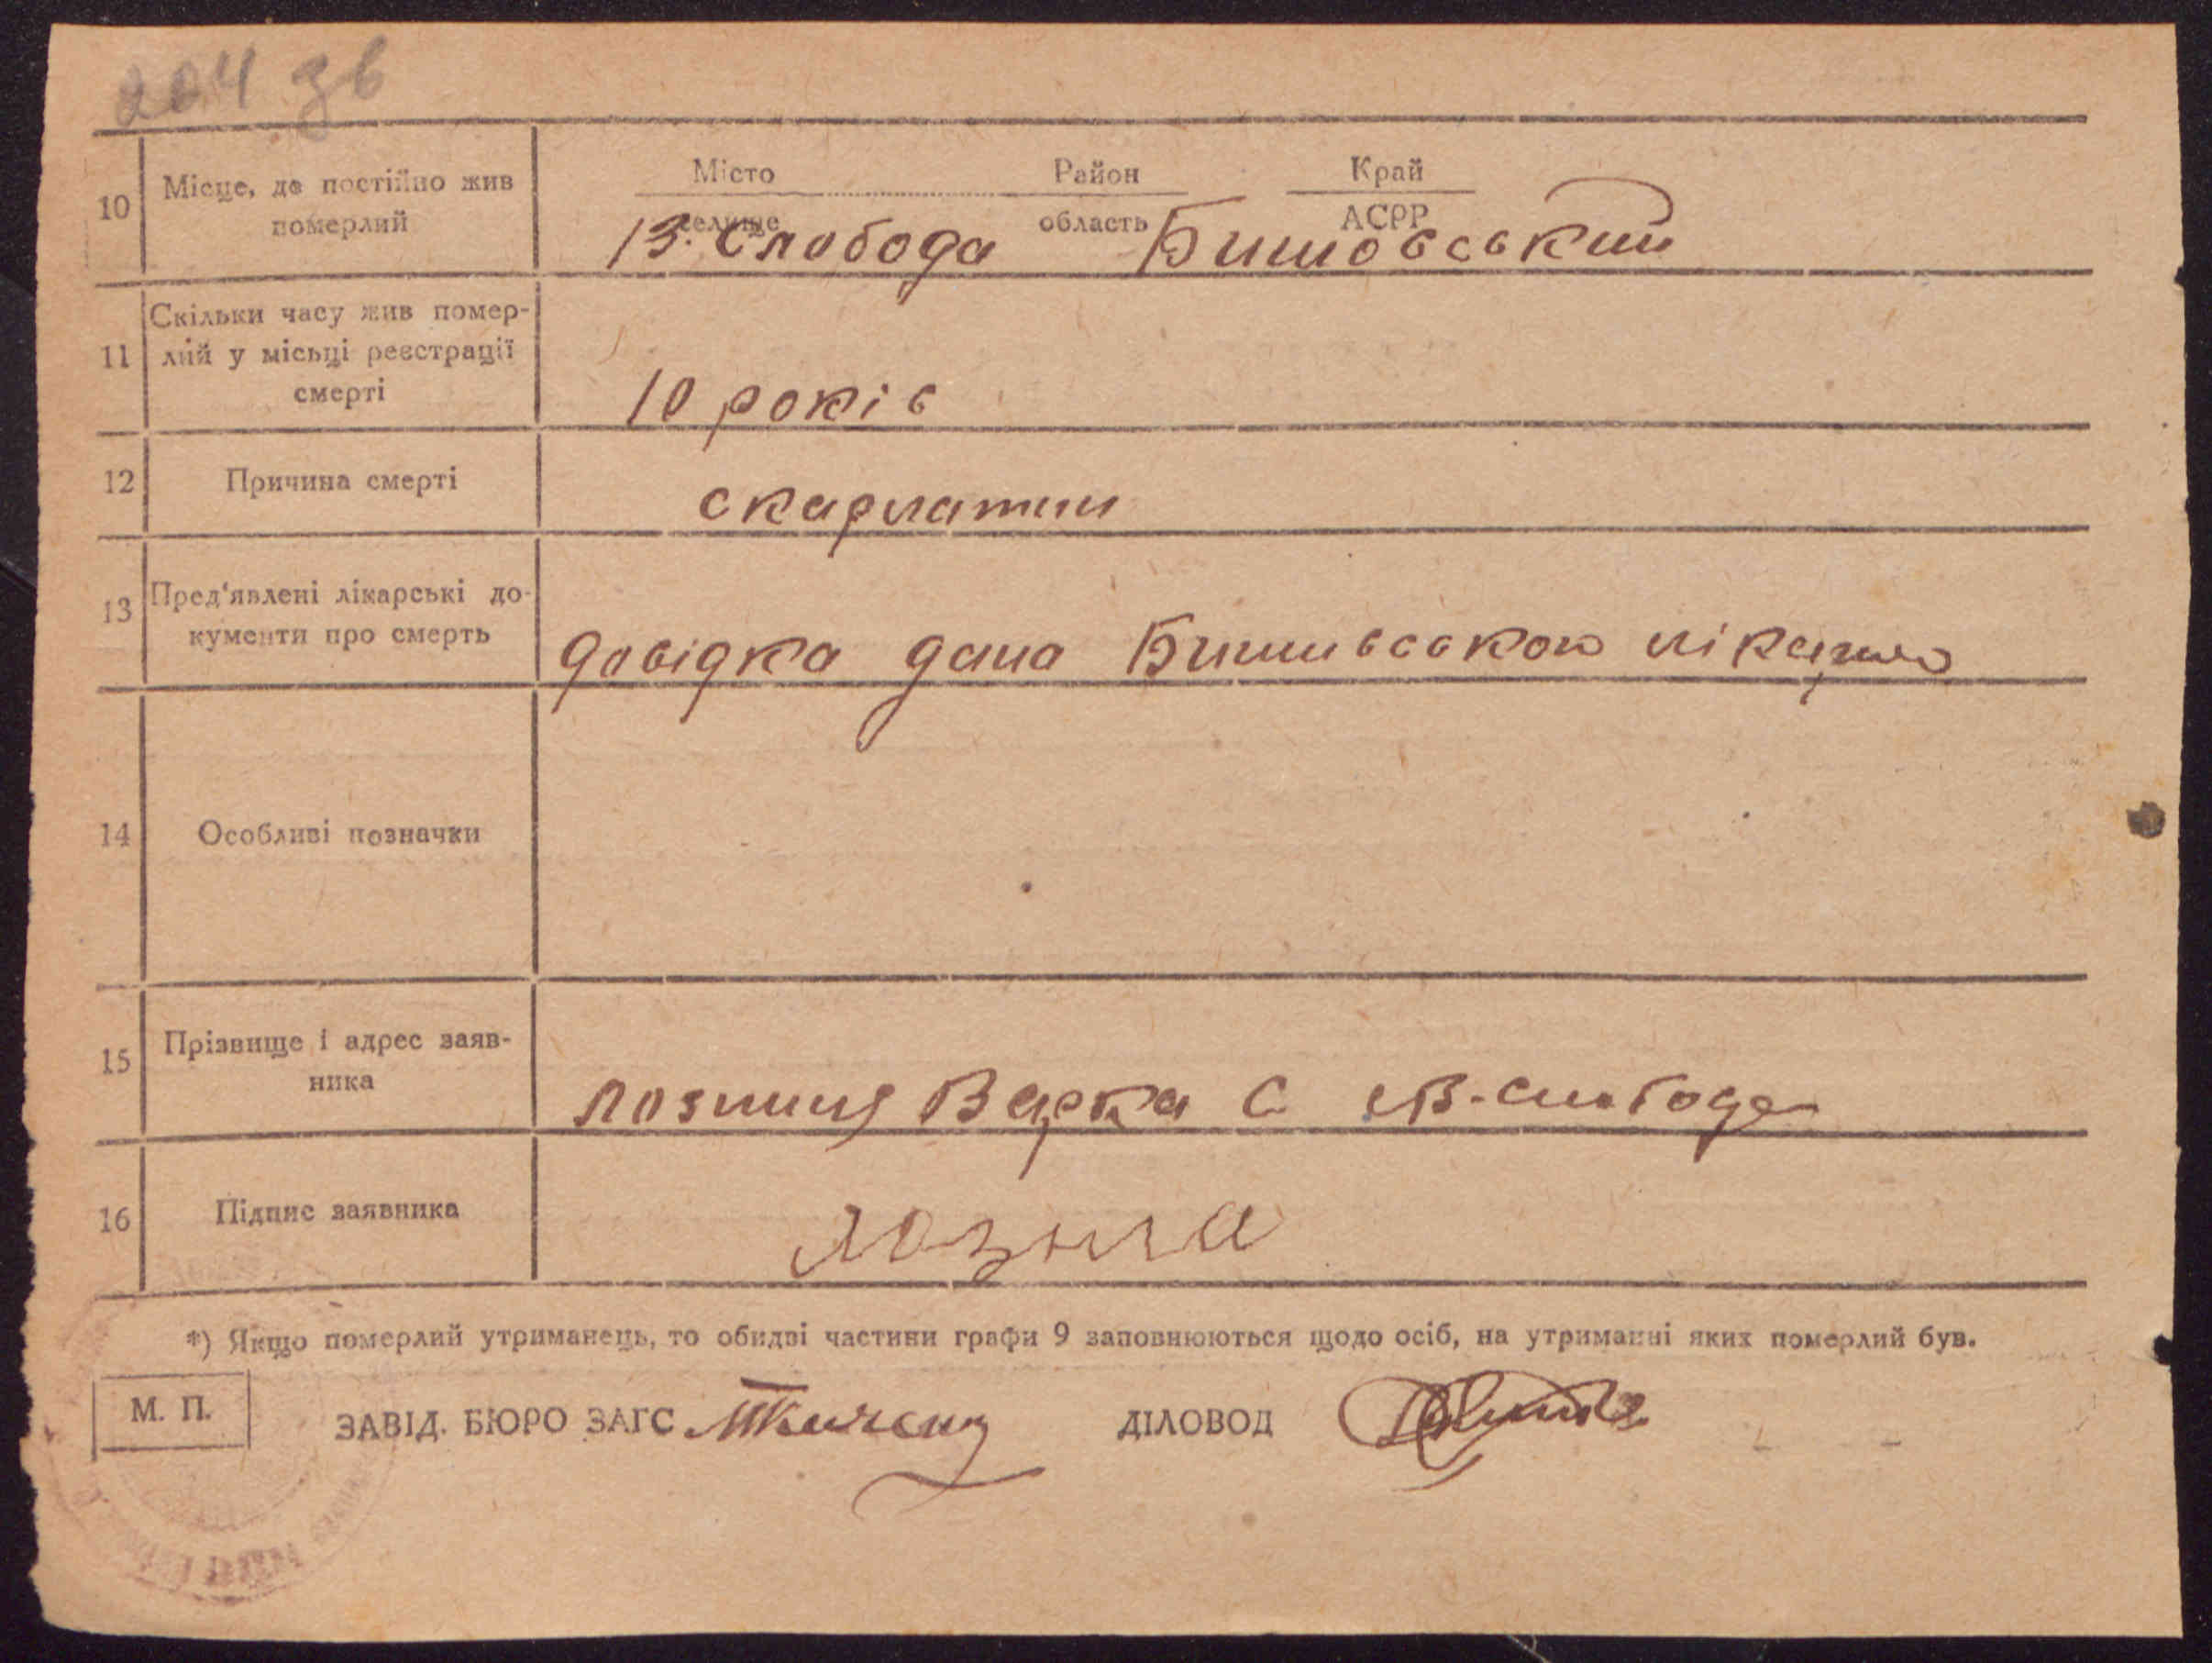 204 зв
10 Місце, де постійно жив померлий
Місто Район Край
селище область АСРР
В. Слобода Бишовський
11 Скільки часу жив помер-
лий у місьці реєстрації
смерті
10 років
12 Причина смерті
скарлатини
13 Пред'явлені лікарські до-
кументи про смерть
довідка дана Бишивською лікарнею
14 Особливі позначки
15 Прізвище і адрес заяв-
ника
Лозина Варка С В-Слобода
16 Підпис заявника
Лозина
*) Якщо померлий утриманець, то обидві частини графи 9 заповнюються щодо осіб, на утриманні яких померлий був.
М. П.
ЗАВІД. БЮРО ЗАГС ДІЛОВОД